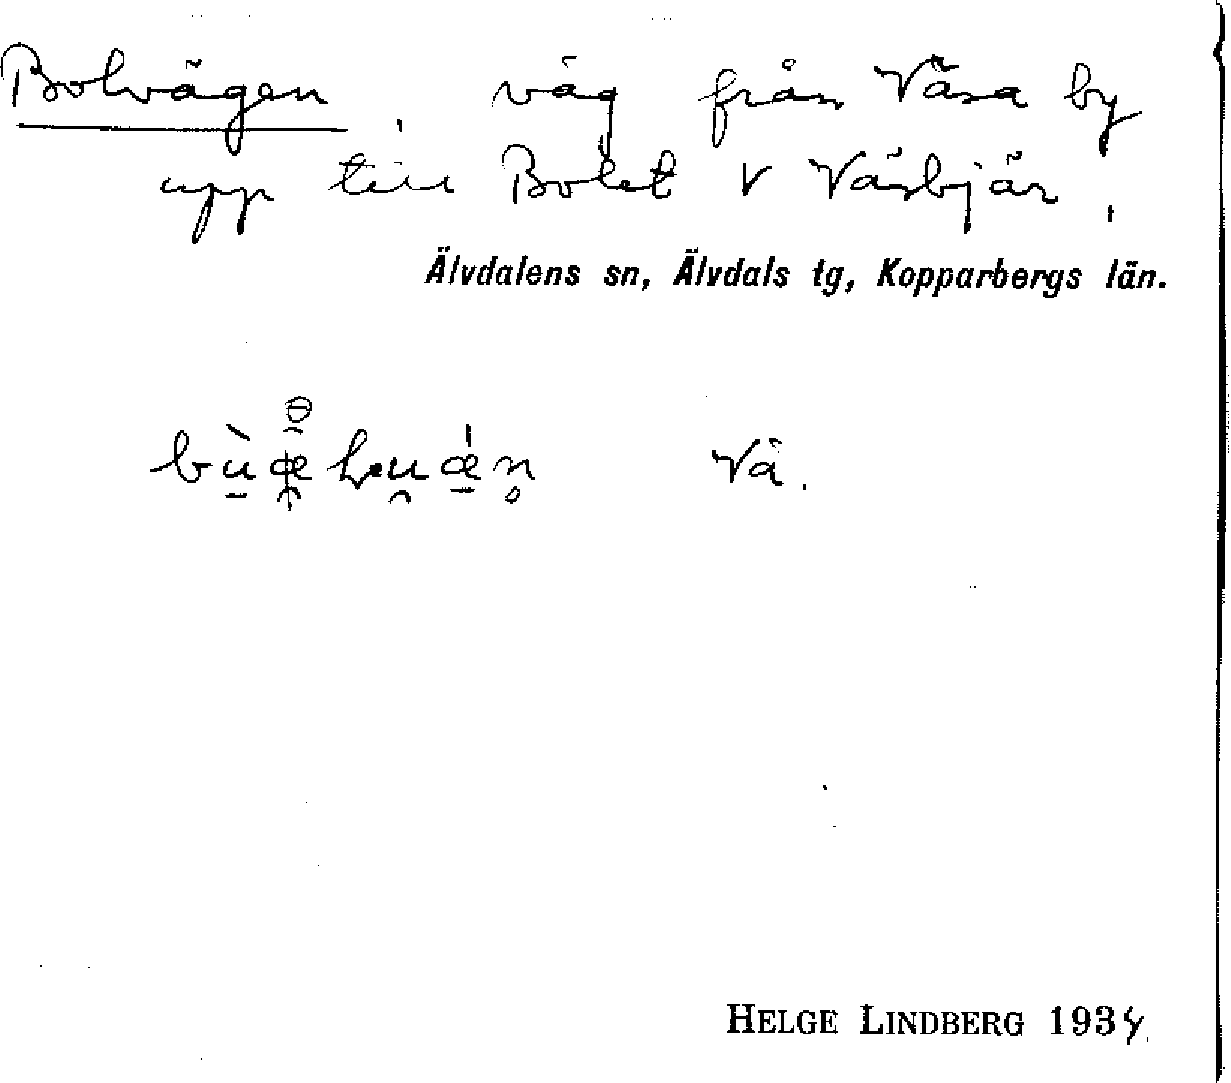 Bolvägen, väg från Väsa by
upp till Bolet V Väsbjär,
Älvdalens sn, Älvdals tg, Kopparbergs län.
Vä.
HELGE LINDBERG 1934